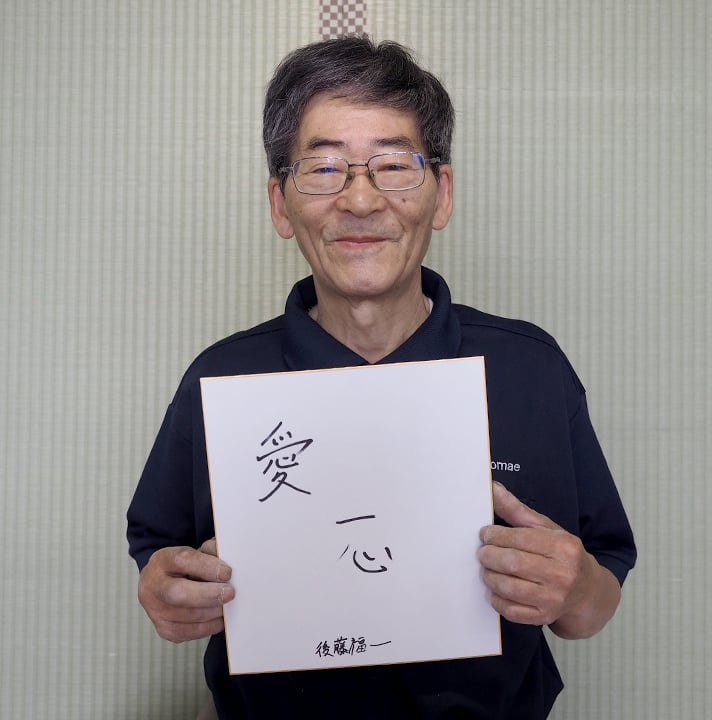 愛
一心
後藤福一
omae